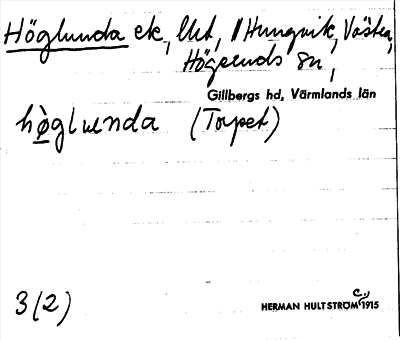 Höglunda ek, lht, Hungvik, Västra,
Högeruds sn,
Gillbergs hd, Värmlands län
hø̀glu̇nda (Torpet)
3(2)
HERMAN HULTSTRÖM C., 1915